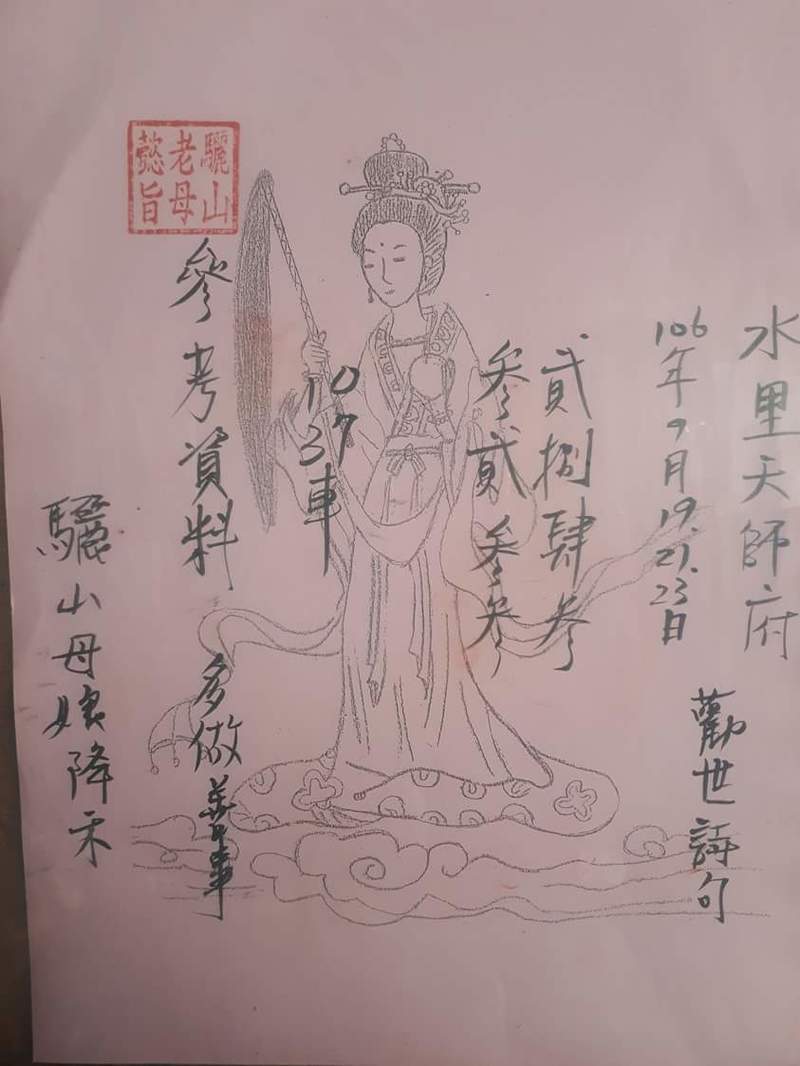 水里天師府
106年9月19.21.23日
勸世詩句
貳捌肆叁
叁貳叁叁
10
37
車
參考資料
多做善事
驪山母娘降示
驪山
老母
懿旨